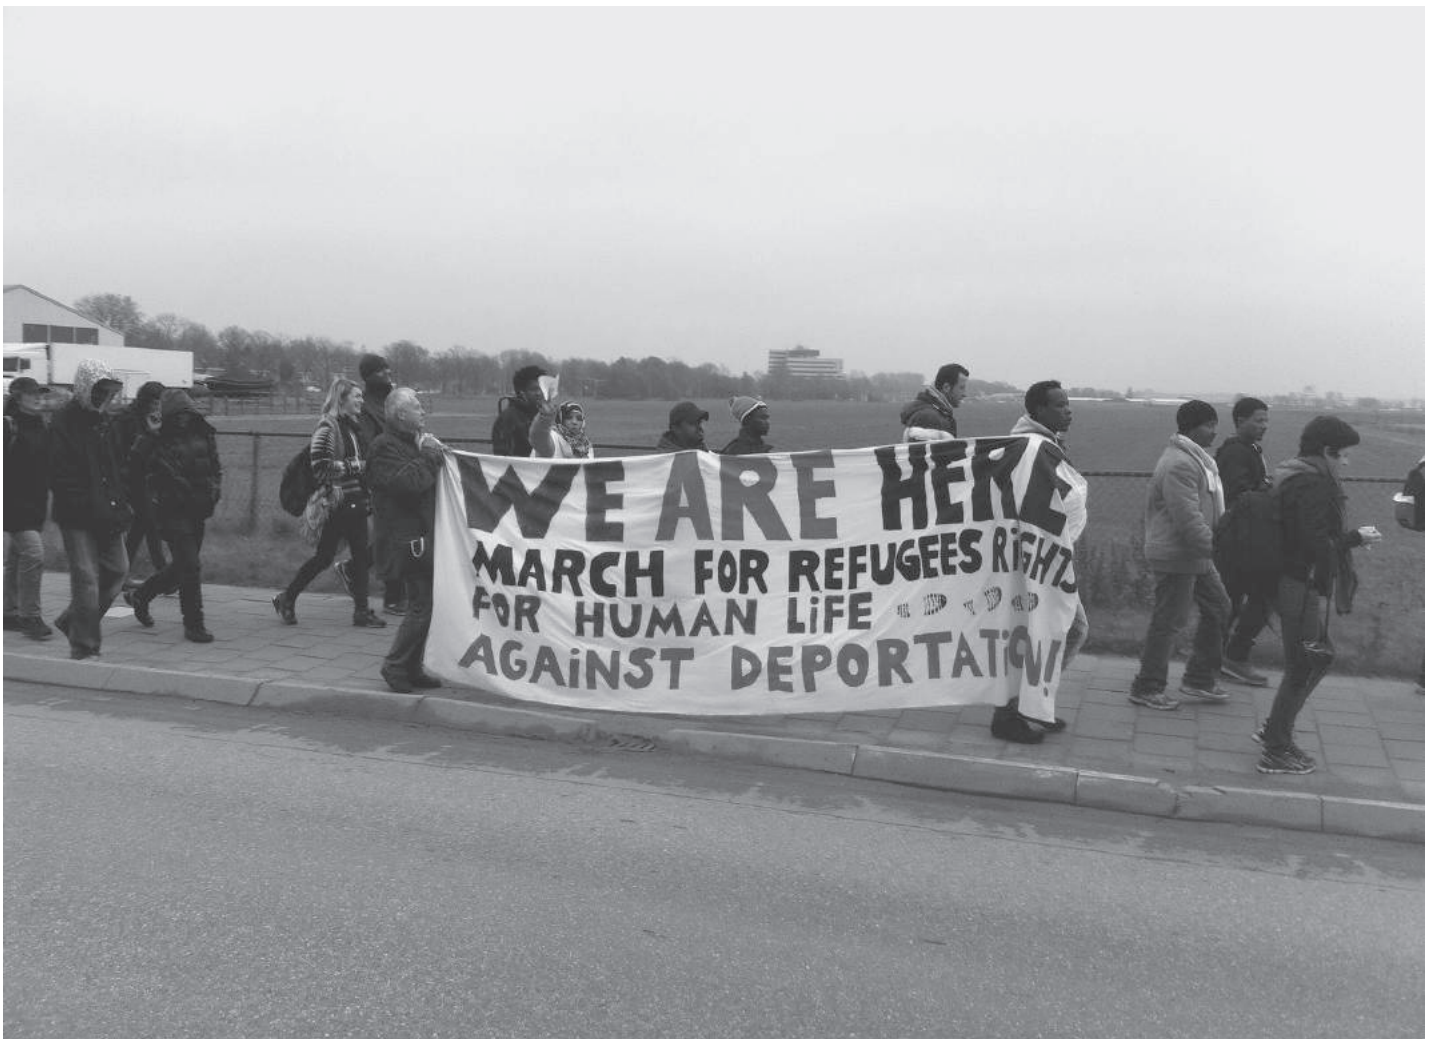 WE ARE HERE
MARCH FOR REFUGEES RiGHTS
FOR HUMAN LiFE
AGAiNST DEPORTATiON!